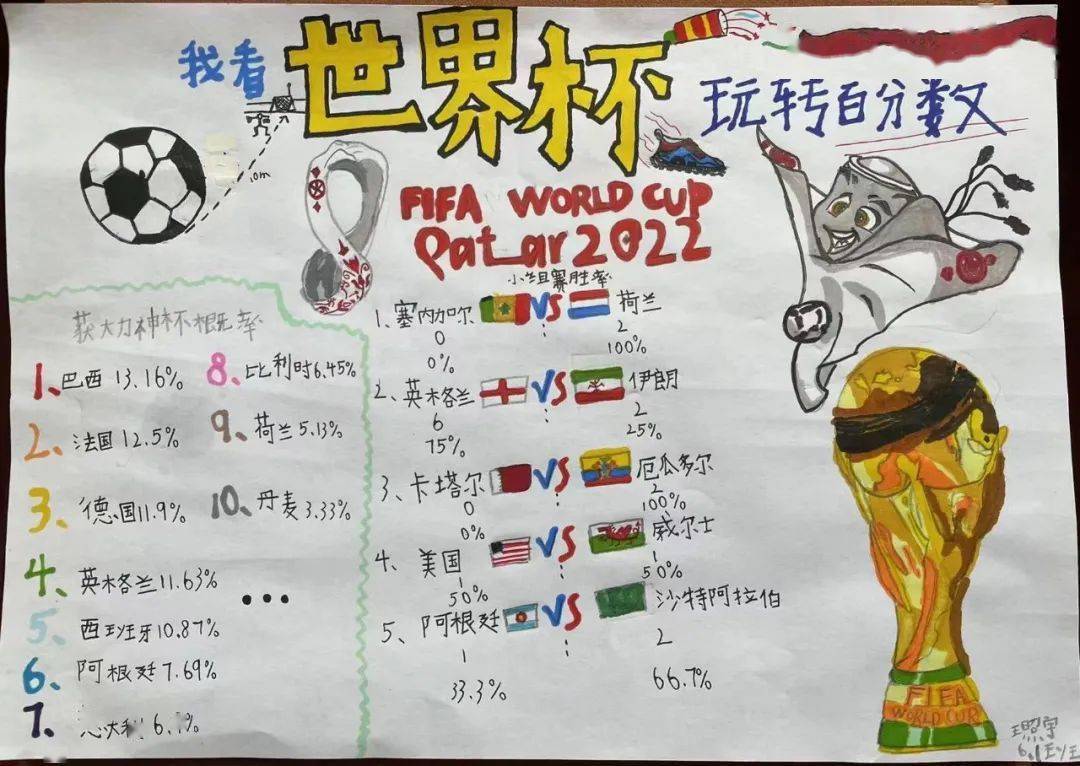 我看
世界杯
玩转百分数
10m
FIFA WORLD CUP
Qatar 2022
获大力神杯概率
1、巴西 13.16%
2、法国 12.5%
3、德国 11.9%
4、英格兰 11.63%
5、西班牙 10.87%
6、阿根廷 7.69%
7、意大利
8、比利时 6.45%
9、荷兰 5.13%
10、丹麦 3.33%
...
小组赛胜率
1、塞内加尔 VS 荷兰
0 : 2
0% 100%
2、英格兰 VS 伊朗
6 : 2
75% 25%
3、卡塔尔 VS 厄瓜多尔
0 : 2
0% 100%
4、美国 VS 威尔士
1 : 1
50% 50%
5、阿根廷 VS 沙特阿拉伯
1 : 2
33.3% 66.7%
FIFA
WORLD CUP